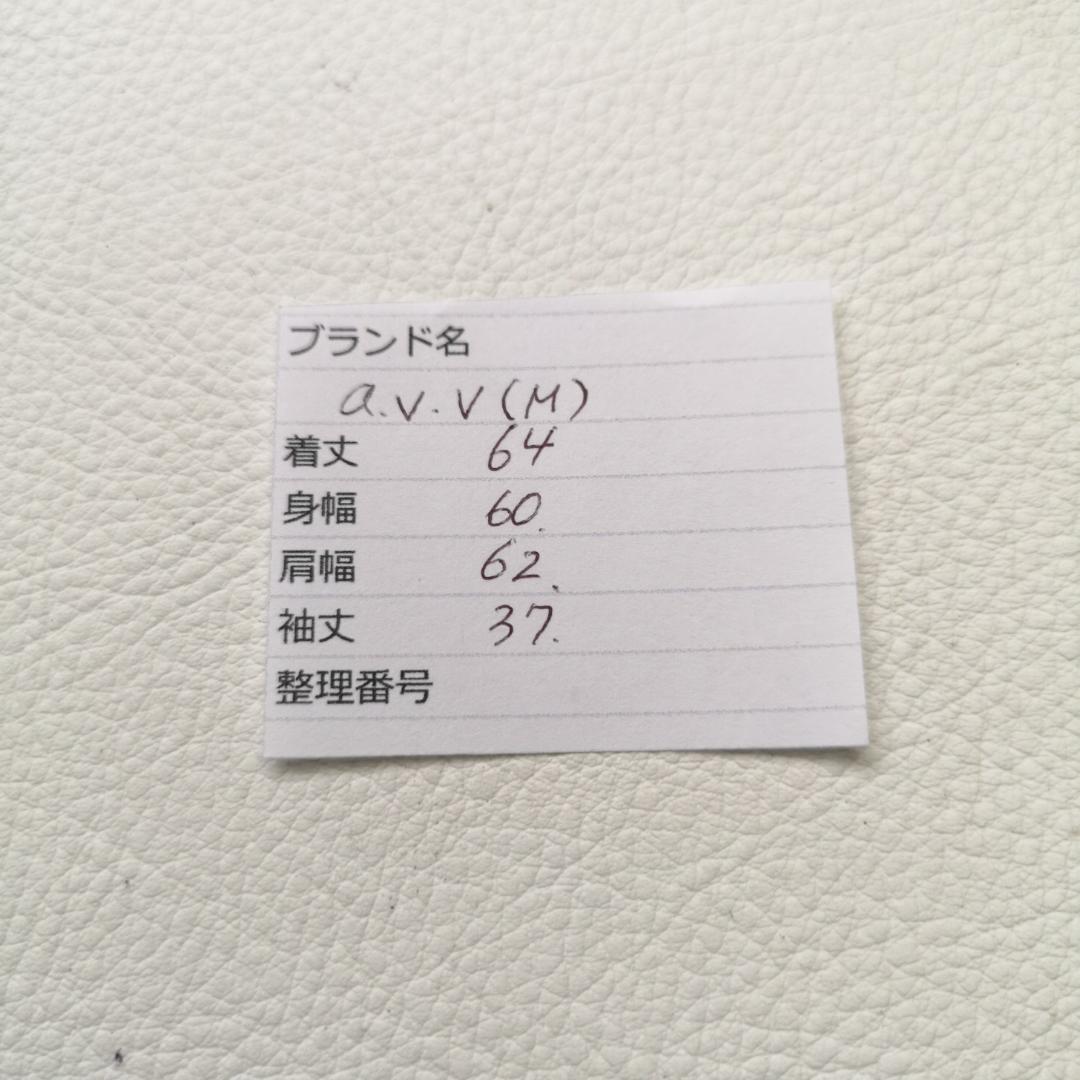 ブランド名
a.v.v(M)
着丈 64
身幅 60.
肩幅 62.
袖丈 37.
整理番号